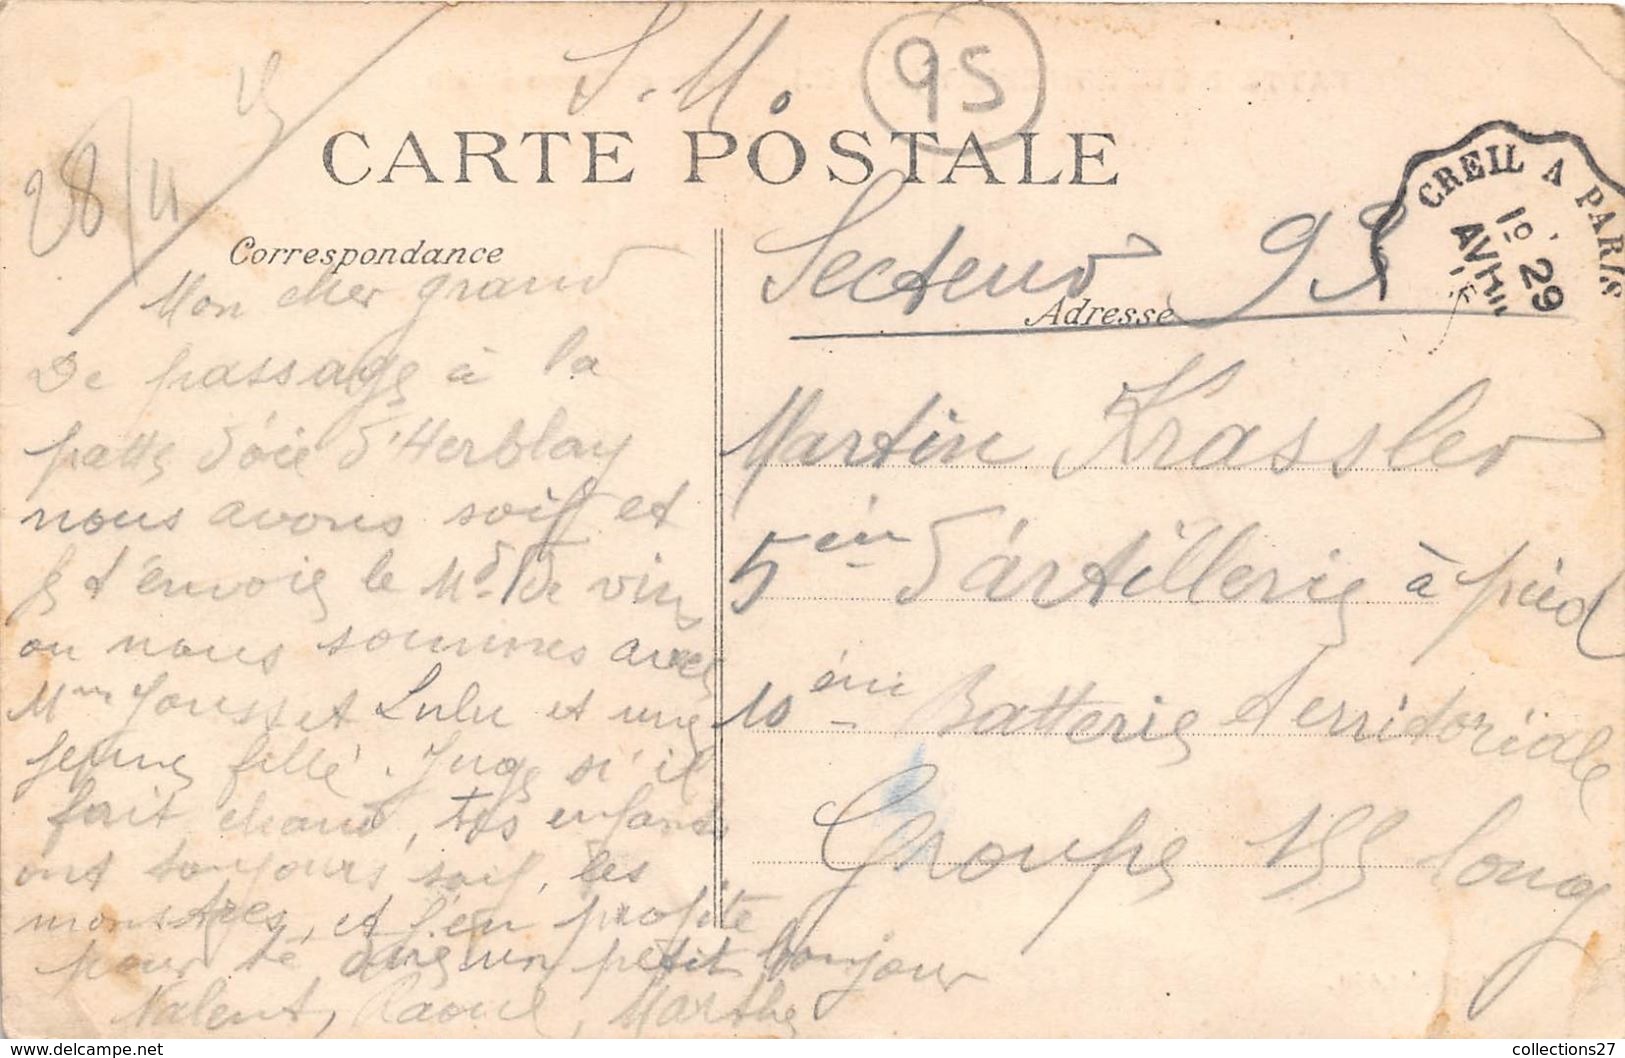 S. M.
95
28/4 15
CARTE POSTALE
CREIL A PARIS
1º
29
AVRIL
Correspondance
Mon cher grand
De passage à la
patte d'oie d'Herblay
nous avons soif et
je t'envoie le Md de vin
ou nous sommes avec
Mme et Lulu et une
jeune fille. Juge s'il
fait chaud, tes enfants
ont toujours soif, les
monstres, et j'en profite
pour te dire un petit bonjour
Valent, Raoul, Marthe
Secteur 95
Adresse
Martin Krassler
5 ém d'artillerie à pied
10 ém Batterie territoriale
Groupe 155 long
collections27